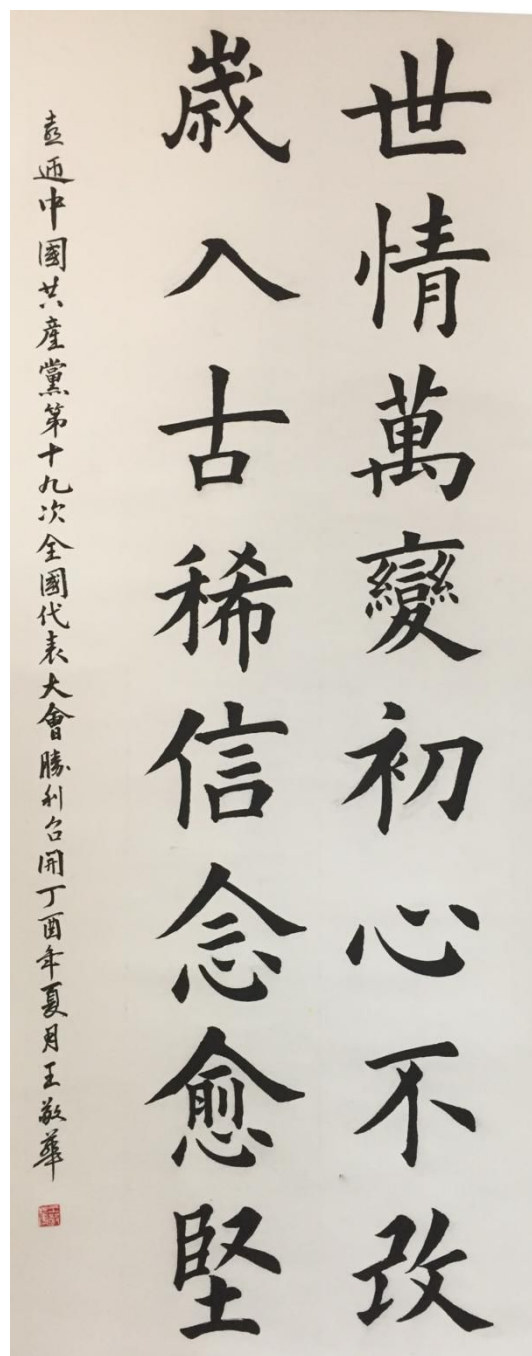 世情萬變初心不改
歲入古稀信念愈堅
喜迎中國共產黨第十九次全國代表大會勝利召開丁酉年夏月王敬華